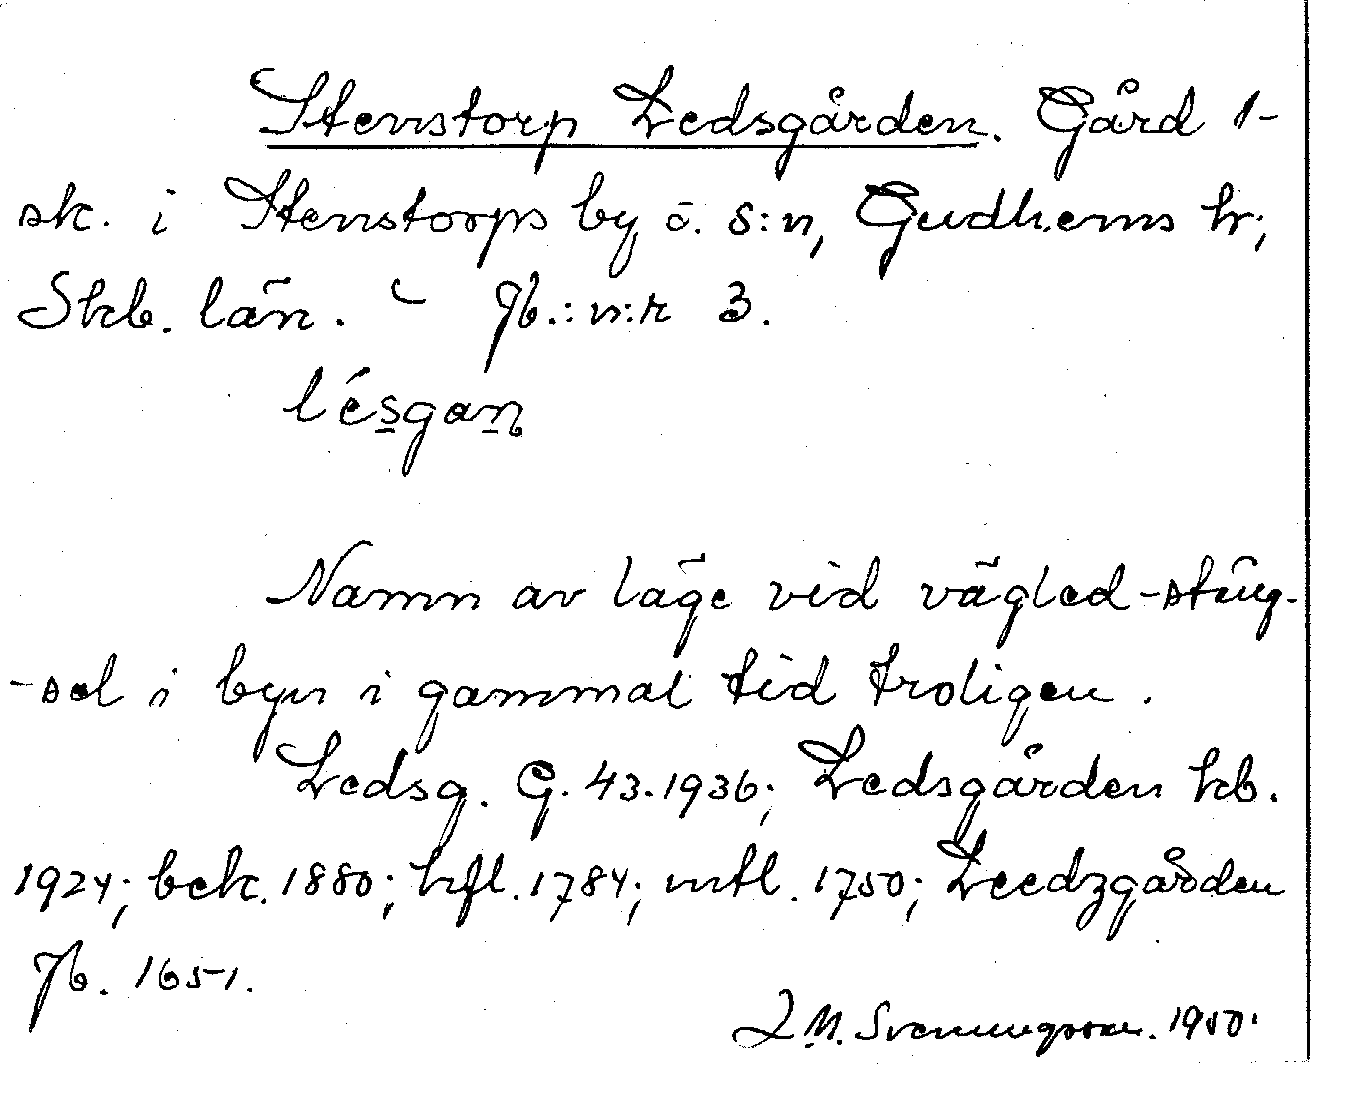 Stenstorp Ledsgården. Gård 1-
sk. i Stenstorps by o. s:n, Gudhems hr;
Skb. län. - Jb.:n:r 3.
lésgan
Namn av läge vid vägled-stäng-
-sel i byn i gammal tid troligen.
Ledsg. G. 43.1936; Ledsgården kb.
1924; bek. 1880; hfl. 1784; mtl. 1750; Leedzgården
Jb. 1651.
M. Svenningsson. 1950.